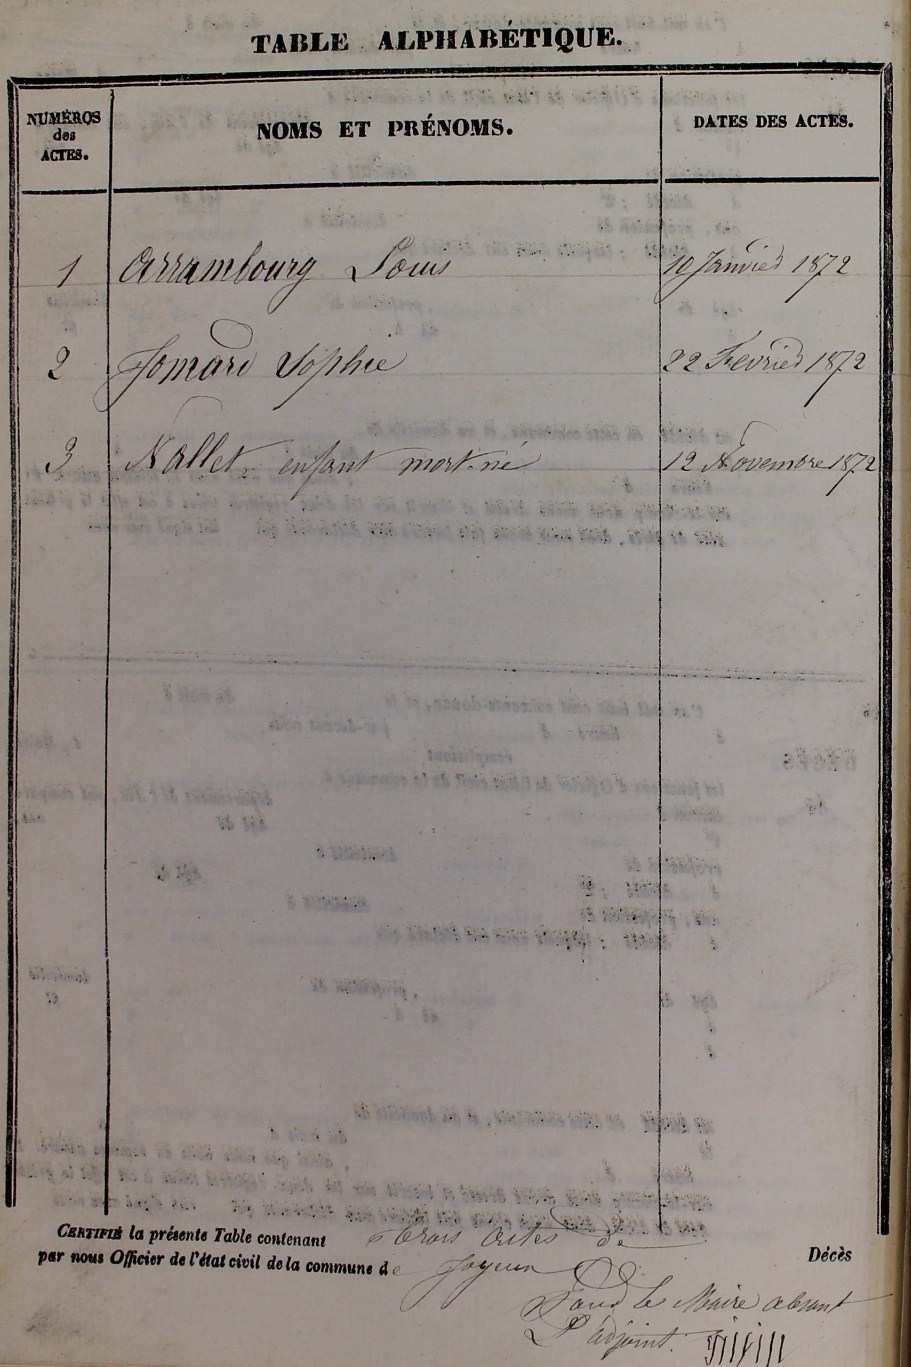 TABLE ALPHABÉTIQUE.
NUMÉROS des ACTES.
NOMS ET PRÉNOMS.
DATES DES ACTES.
1 Arrambourg Louis 19 Janvier 1872
2 Jomard Sophie 22 Février 1872
3 Nallet enfant mort-né 12 Novembre 1872
CERTIFIÉ la présente Table contenant trois actes de Décès
par nous Officier de l'état civil de la commune de Joyeux
Pour le Maire absent
L'adjoint.